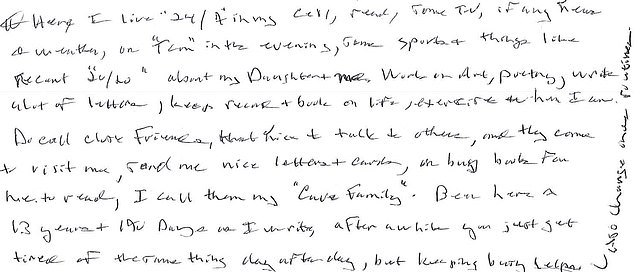 Here I live "24/7" in my cell, read, some TV, if any news
or weather, or "Fam" in the evening, some sports & things like
recent "20/20" about my Daughter & me. Work on Art, poetry, write
alot of letters, keep record & book on life, exercise when I am.
Do call close Friends, that nice to talk to others, and they come
to visit me, send me nice letters & cards, or buy books For
me to read, I call them my "Care Family". Been here a
13 years & 190 Days as I write, after awhile you just get
tired of the same thing day after day, but keeping busy helps
Also change ones routines.